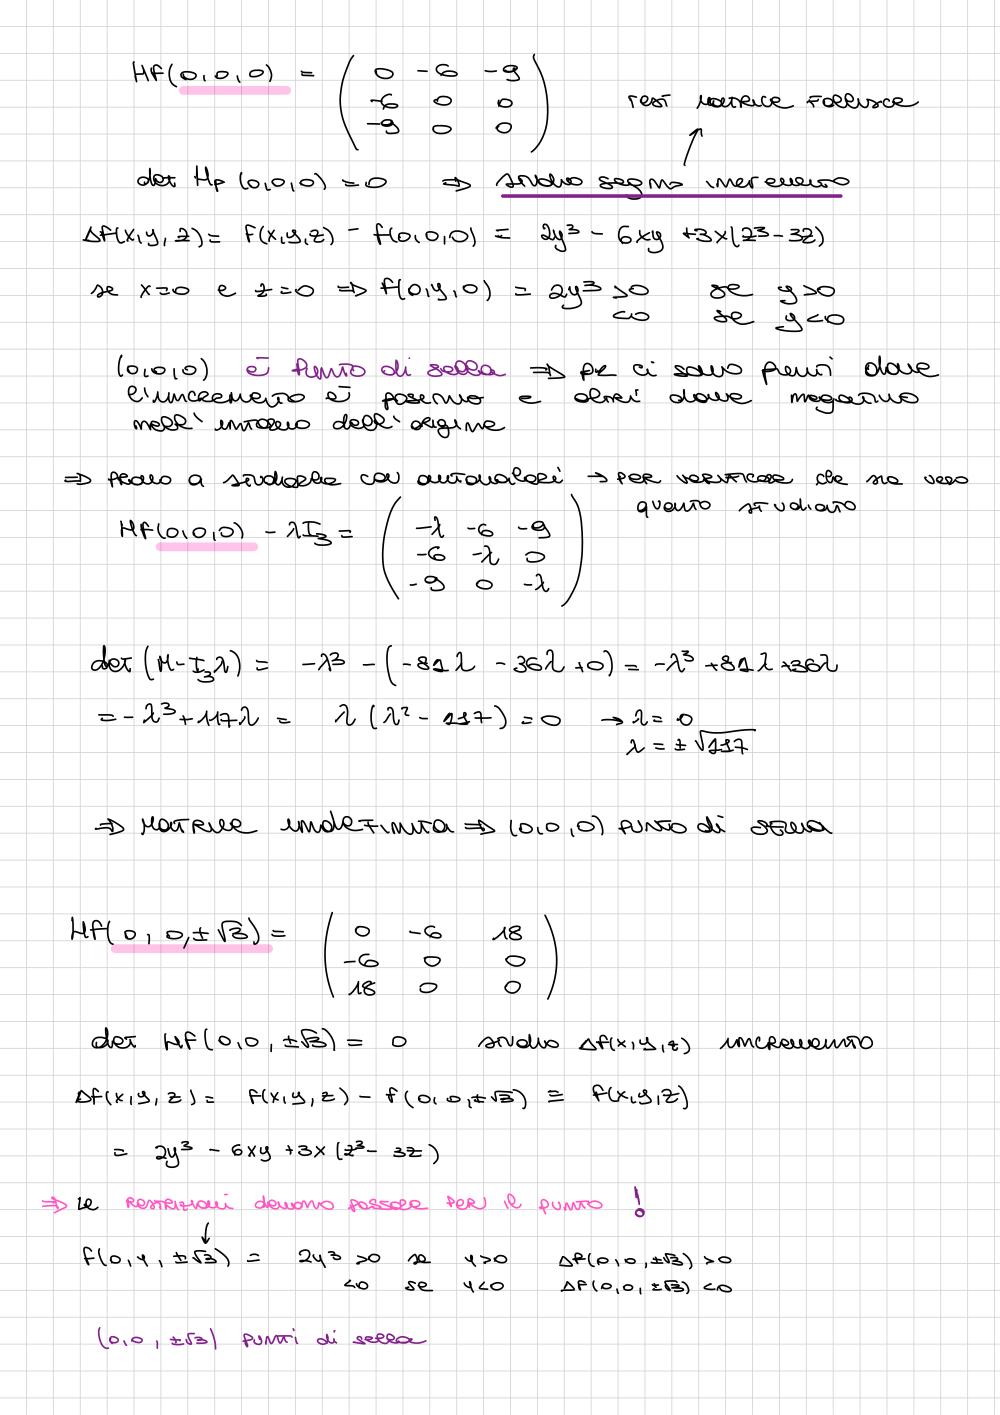 Hf(0,0,0) = ( 0 -6 -9
-6 0 0
-9 0 0 )
TEST MATRICE FALLISCE
det Hf (0,0,0) = 0 ⇒ studio segno incremento
Δf(x,y,z) = f(x,y,z) - f(0,0,0) = 2y³ - 6xy + 3x(z³-3z)
se x=0 e z=0 ⇒ f(0,y,0) = 2y³ >0 se y>0
<0 se y<0
(0,0,0) è punto di sella ⇒ pe ci sono punti dove
l'incremento è positivo e altri dove negativo
nell'intorno dell'origine
⇒ provo a studiarla con autovalori → PER VERIFICARE che sia vero
quanto studiato
Hf(0,0,0) - λI₃ = ( -λ -6 -9
-6 -λ 0
-9 0 -λ )
det (H-I₃λ) = -λ³ - (-81λ - 36λ + 0) = -λ³ + 81λ + 36λ
= -λ³ + 117λ = λ (λ² - 117) = 0 → λ = 0
λ = ± √117
⇒ MATRICE INDEFINITA ⇒ (0,0,0) PUNTO di SELLA
Hf(0, 0, ±√3) = ( 0 -6 18
-6 0 0
18 0 0 )
det Hf(0,0,±√3) = 0 studio Δf(x,y,z) incremento
Δf(x,y,z) = f(x,y,z) - f(0,0,±√3) ≡ f(x,y,z)
= 2y³ - 6xy + 3x (z³ - 3z)
⇒ le RESTRIZIONI devono passare PER il punto !
↓
f(0,y,±√3) = 2y³ >0 se y>0 Δf(0,0,±√3) >0
<0 se y<0 Δf(0,0,±√3) <0
(0,0,±√3) PUNTI di sella